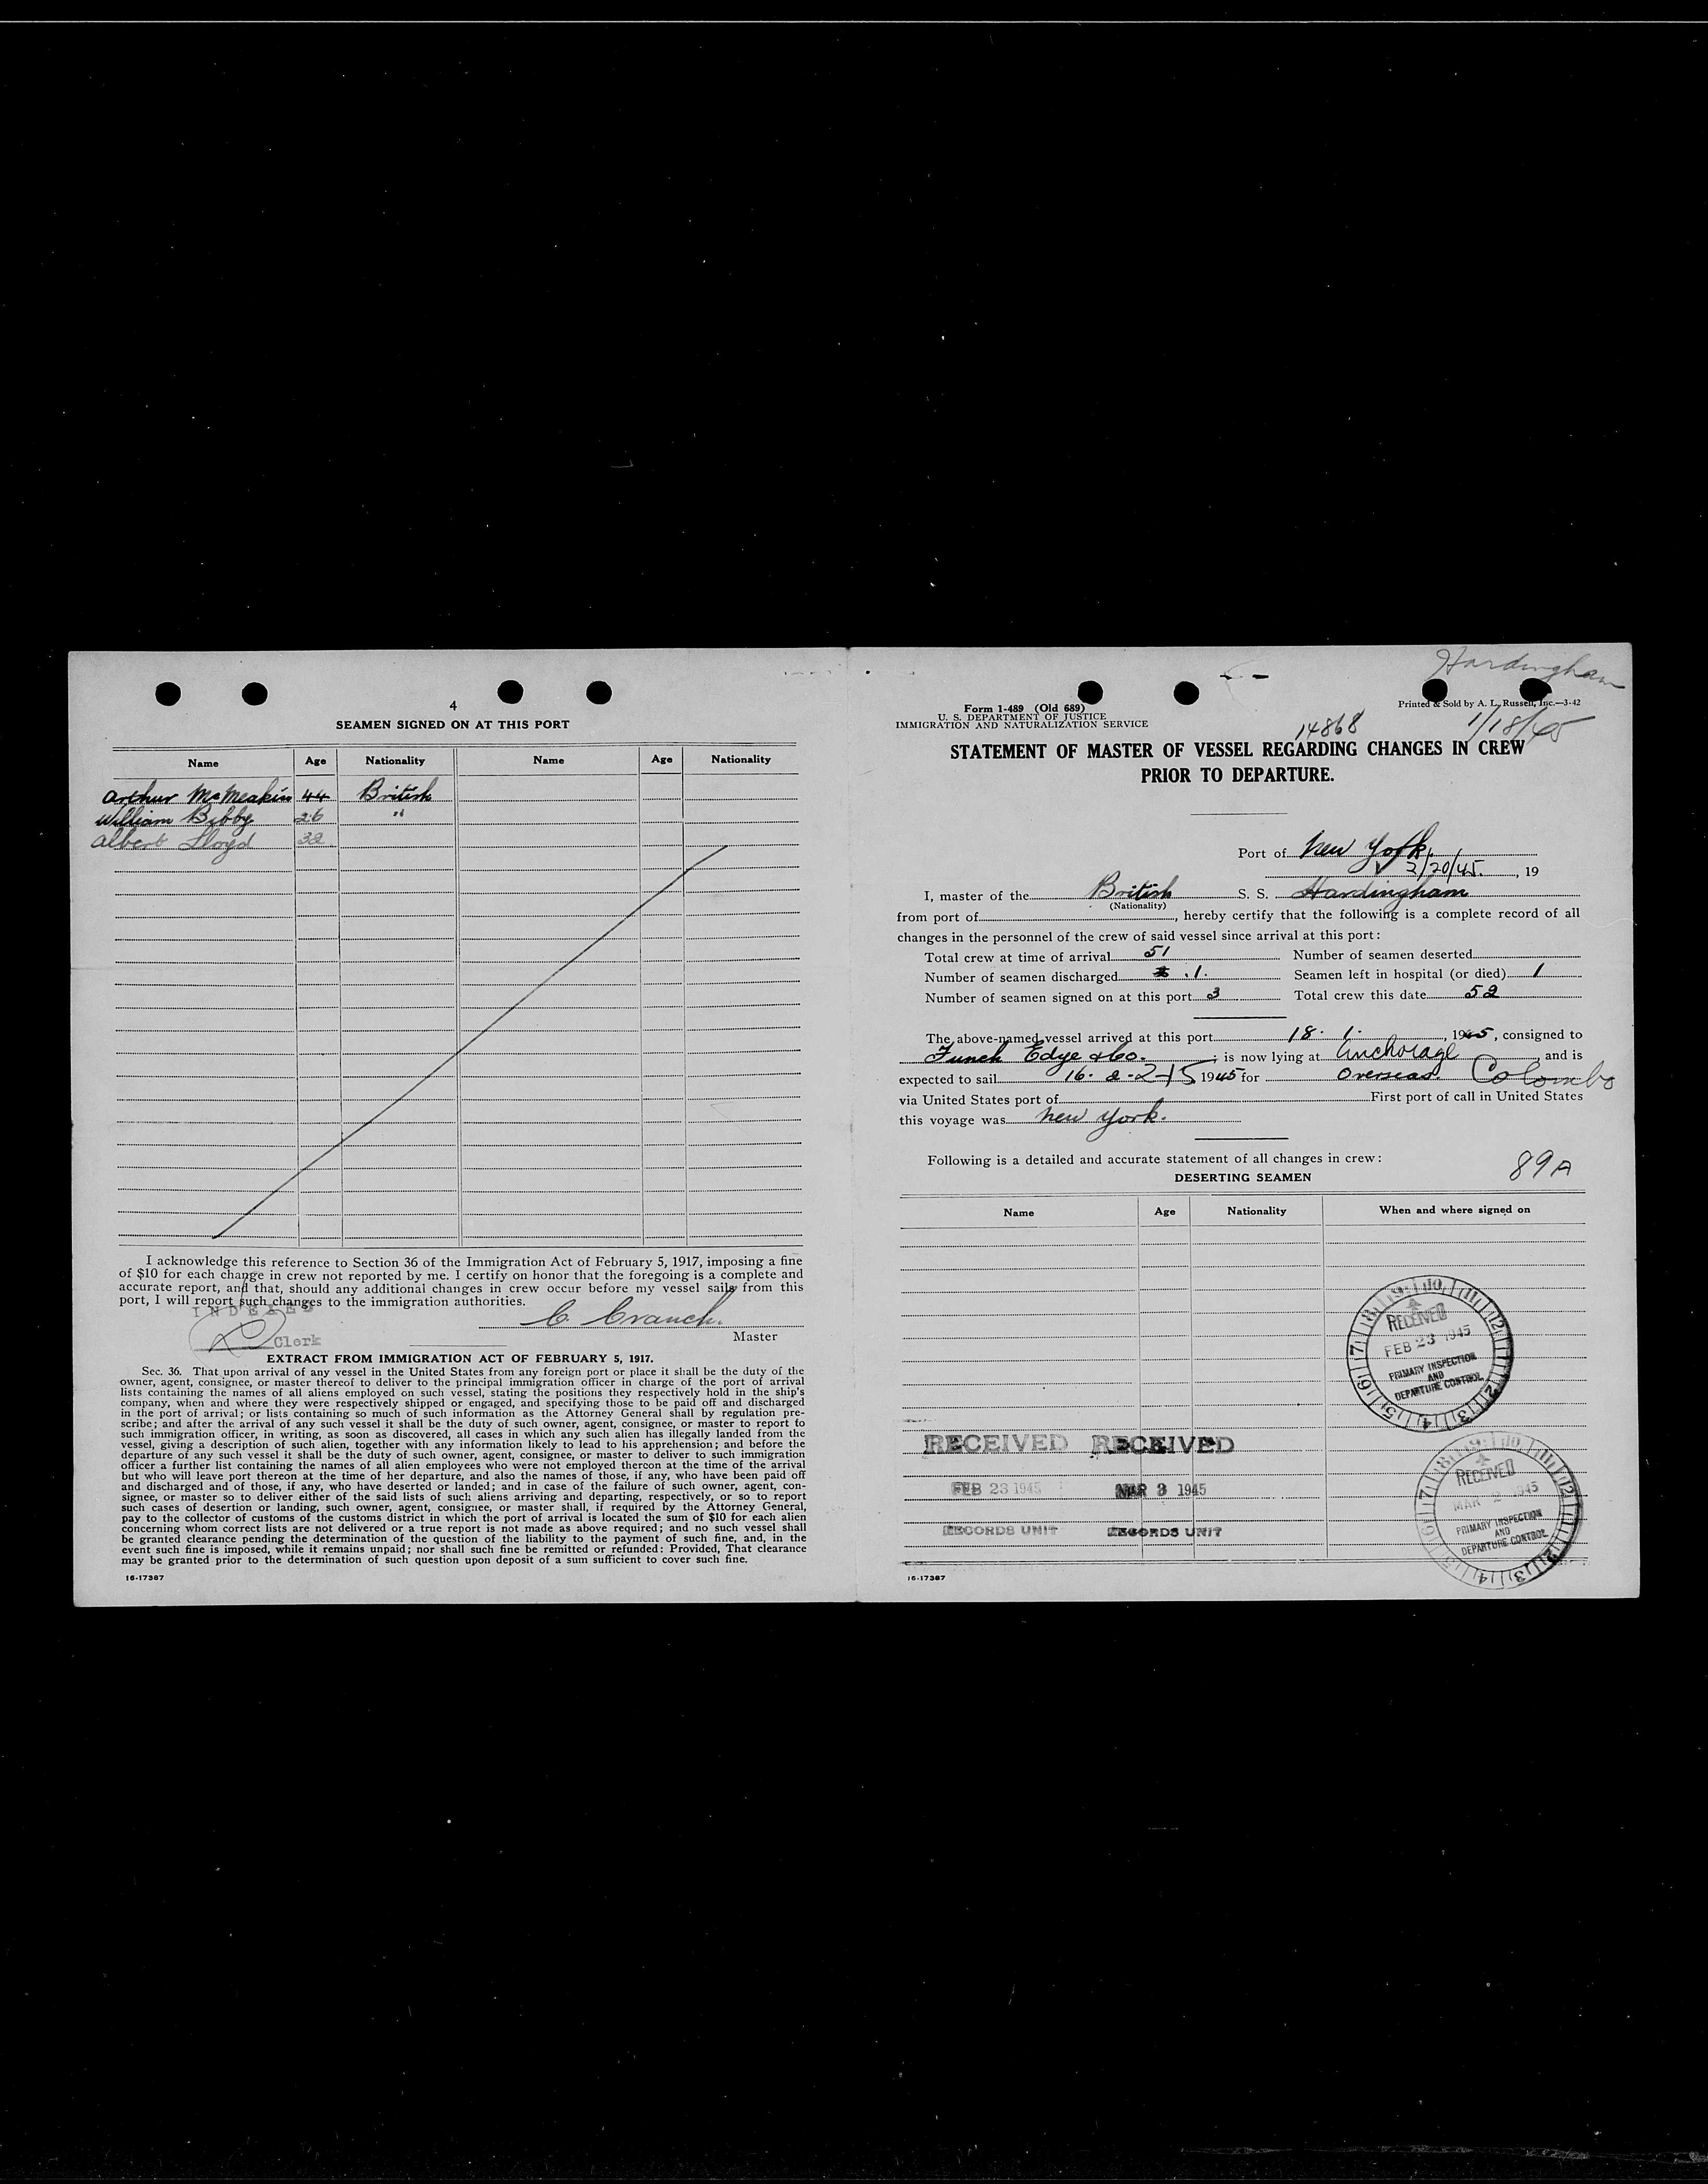 4
SEAMEN SIGNED ON AT THIS PORT
Name Age Nationality Name Age Nationality
Arthur McMeakin 44 British
William Bibby 26 "
Albert Lloyd 32
I acknowledge this reference to Section 36 of the Immigration Act of February 5, 1917, imposing a fine
of $10 for each change in crew not reported by me. I certify on honor that the foregoing is a complete and
accurate report, and that, should any additional changes in crew occur before my vessel sails from this
port, I will report such changes to the immigration authorities.
INDEXED
C. Cranch.
Clerk
Master
EXTRACT FROM IMMIGRATION ACT OF FEBRUARY 5, 1917.
Sec. 36. That upon arrival of any vessel in the United States from any foreign port or place it shall be the duty of the
owner, agent, consignee, or master thereof to deliver to the principal immigration officer in charge of the port of arrival
lists containing the names of all aliens employed on such vessel, stating the positions they respectively hold in the ship's
company, when and where they were respectively shipped or engaged, and specifying those to be paid off and discharged
in the port of arrival; or lists containing so much of such information as the Attorney General shall by regulation pre-
scribe; and after the arrival of any such vessel it shall be the duty of such owner, agent, consignee, or master to report to
such immigration officer, in writing, as soon as discovered, all cases in which any such alien has illegally landed from the
vessel, giving a description of such alien, together with any information likely to lead to his apprehension; and before the
departure of any such vessel it shall be the duty of such owner, agent, consignee, or master to deliver to such immigration
officer a further list containing the names of all alien employees who were not employed thereon at the time of the arrival
but who will leave port thereon at the time of her departure, and also the names of those, if any, who have been paid off
and discharged and of those, if any, who have deserted or landed; and in case of the failure of such owner, agent, con-
signee, or master so to deliver either of the said lists of such aliens arriving and departing, respectively, or so to report
such cases of desertion or landing, such owner, agent, consignee, or master shall, if required by the Attorney General,
pay to the collector of customs of the customs district in which the port of arrival is located the sum of $10 for each alien
concerning whom correct lists are not delivered or a true report is not made as above required; and no such vessel shall
be granted clearance pending the determination of the question of the liability to the payment of such fine, and, in the
event such fine is imposed, while it remains unpaid; nor shall such fine be remitted or refunded: Provided, That clearance
may be granted prior to the determination of such question upon deposit of a sum sufficient to cover such fine.
16-17387
Hardingham
Form 1-489 (Old 689)
Printed & Sold by A. L. Russell, Inc.—3-42
U. S. DEPARTMENT OF JUSTICE
IMMIGRATION AND NATURALIZATION SERVICE
14868 1/18/45
STATEMENT OF MASTER OF VESSEL REGARDING CHANGES IN CREW
PRIOR TO DEPARTURE.
Port of New York
2/20/45. , 19
I, master of the British S. S. Hardingham
(Nationality)
from port of , hereby certify that the following is a complete record of all
changes in the personnel of the crew of said vessel since arrival at this port:
Total crew at time of arrival 51 Number of seamen deserted
Number of seamen discharged 1. Seamen left in hospital (or died) 1
Number of seamen signed on at this port 3 Total crew this date 52
The above-named vessel arrived at this port 18. 1. 1945, consigned to
Funch Edye & Co. ; is now lying at Anchorage and is
expected to sail 16. 2. 2-15 1945 for Overseas. Colombo
via United States port of First port of call in United States
this voyage was New York.
Following is a detailed and accurate statement of all changes in crew:
89A
DESERTING SEAMEN
Name Age Nationality When and where signed on
RECEIVED
FEB 23 1945
PRIMARY INSPECTION
AND
DEPARTURE CONTROL
RECEIVED RECEIVED
FEB 23 1945 MAR 3 1945
RECORDS UNIT RECORDS UNIT
RECEIVED
MAR 2 1945
PRIMARY INSPECTION
AND
DEPARTURE CONTROL
16-17387